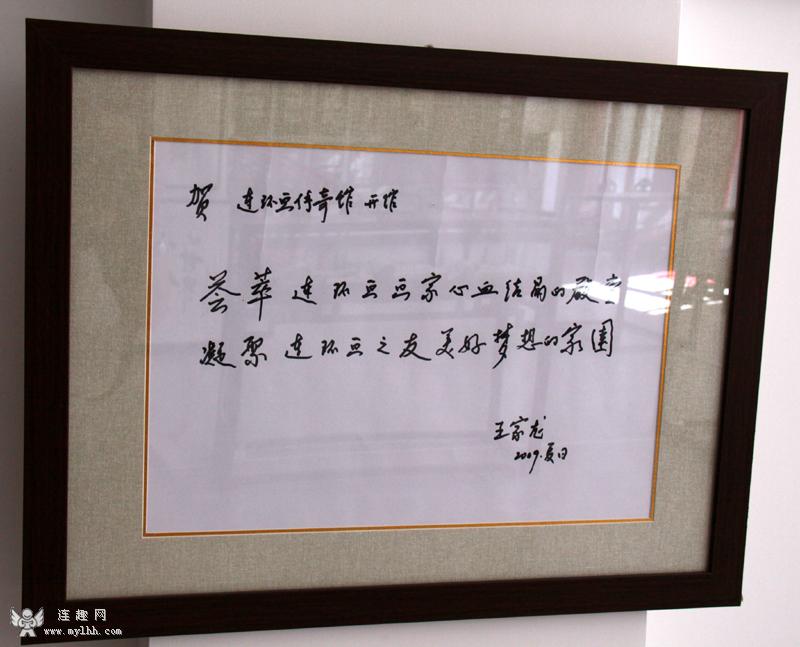 贺 连环画传奇馆 开馆
荟萃连环画画家心血结晶的殿堂
凝聚连环画之友美好梦想的家园
王家龙
2009.夏日
连趣网
www.mylhh.com